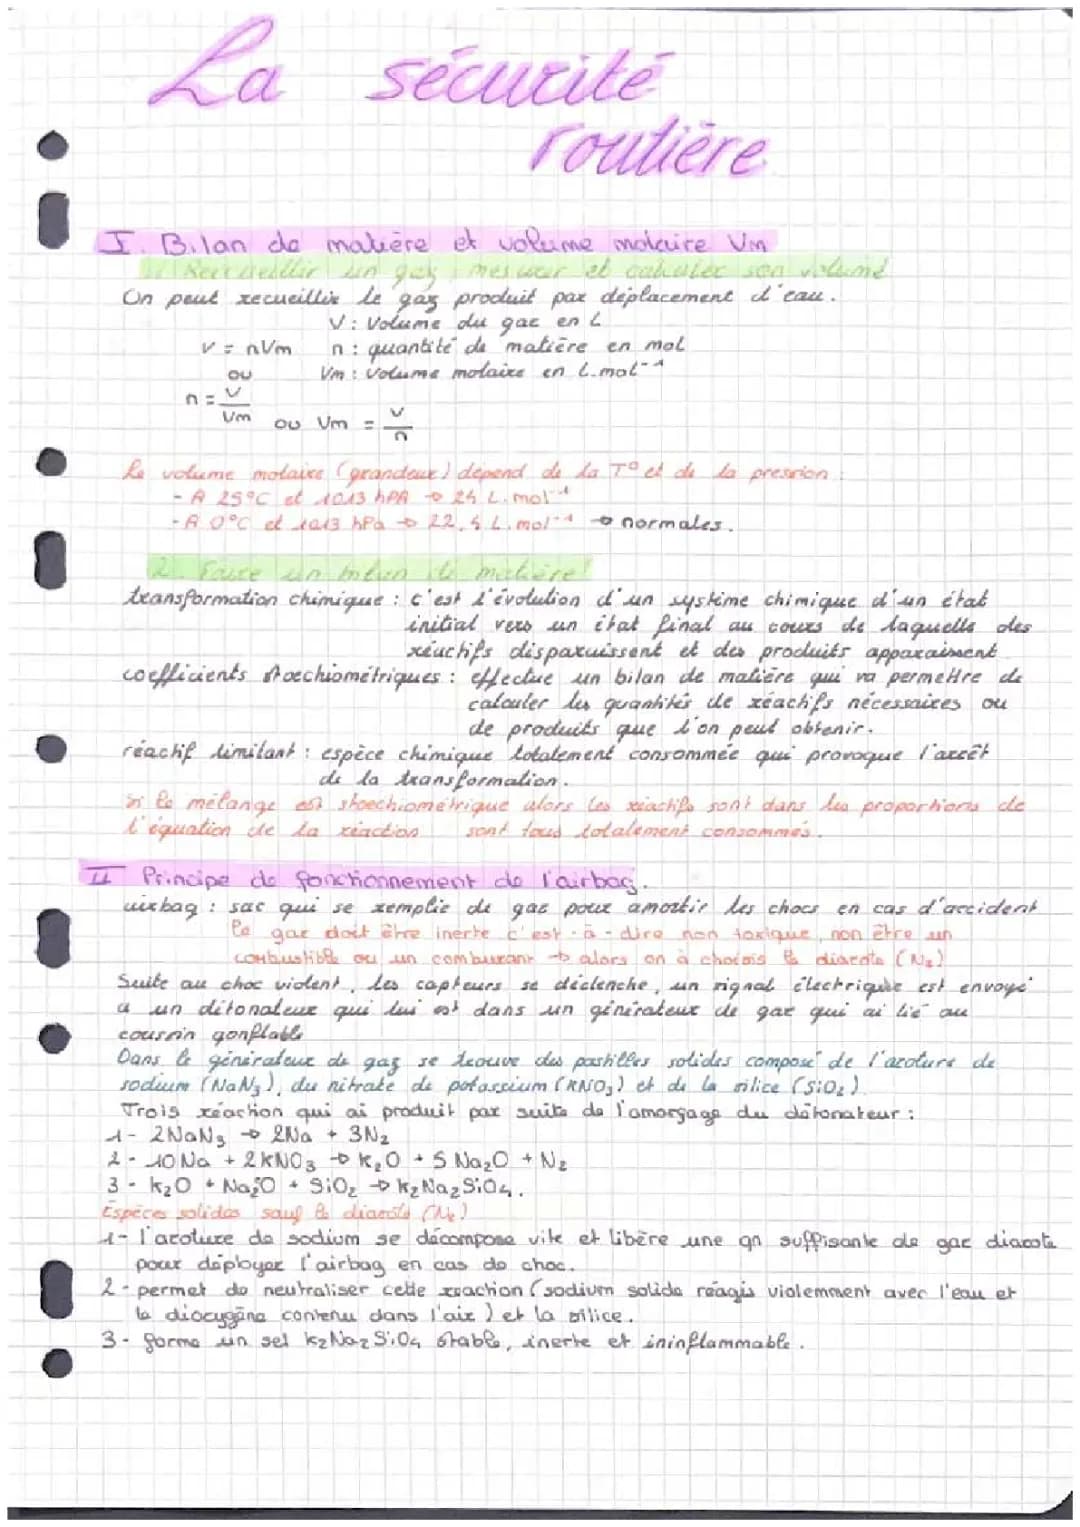 La sécurité
routière
I. Bilan de matière et volume molaire Vm
1. Recueillir un gaz, mesurer et calculer son volume
On peut recueillir le gaz produit par déplacement d'eau.
V : Volume du gaz en L
V = nVm n : quantité de matière en mol
ou Vm : Volume molaire en L.mol⁻¹
n = V/Vm ou Vm = V/n
Le volume molaire (grandeur) dépend de la T° et de la pression :
- A 25°C et 1013 hPA → 24 L.mol⁻¹
- A 0°C et 1013 hPa → 22,4 L.mol⁻¹ → normales.
2. Faire un bilan de matière!
transformation chimique : c'est l'évolution d'un système chimique d'un état
initial vers un état final au cours de laquelle des
réactifs disparaissent et des produits apparaissent.
coefficients stoechiométriques : effectue un bilan de matière qui va permettre de
calculer les quantités de réactifs nécessaires ou
de produits que l'on peut obtenir.
réactif limitant : espèce chimique totalement consommée qui provoque l'arrêt
de la transformation.
si le mélange est stoechiométrique alors les réactifs sont dans les proportions de
l'équation de la réaction sont tous totalement consommés.
II Principe de fonctionnement de l'airbag.
airbag : sac qui se remplie de gaz pour amortir les chocs en cas d'accident
le gaz doit être inerte c'est-à-dire non toxique, non être un
combustible ou un comburant → alors on à choisis le diazote (N₂)
Suite au choc violent, les capteurs se déclenche, un signal électrique est envoyé
a un détonateur qui lui est dans un générateur de gaz qui ai lié au
coussin gonflable
Dans le générateur de gaz se trouve des pastilles solides composé de l'azoture de
sodium (NaN₃), du nitrate de potassium (KNO₃) et de la silice (SiO₂).
Trois réaction qui ai produit par suite de l'amorçage du détonateur :
1- 2NaN₃ → 2Na + 3N₂
2- 10Na + 2KNO₃ → K₂O + 5Na₂O + N₂
3- K₂O + Na₂O + SiO₂ → K₂Na₂SiO₄.
Espèces solides sauf le diazote (N₂)
1- l'azoture de sodium se décompose vite et libère une qn suffisante de gaz diazote
pour déployer l'airbag en cas de choc.
2- permet de neutraliser cette reaction (sodium solide réagis violemment avec l'eau et
le dioxygène contenu dans l'air) et la silice.
3- forme un sel K₂Na₂SiO₄ stable, inerte et ininflammable.